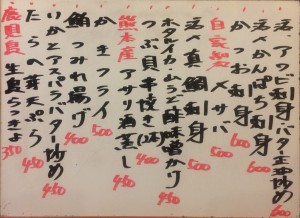 活〆アワビ刺身バター正油炒め 600
活〆かんぱち刺身 600
かつお刺身 600
自家製 〆サバ 500
活〆真鯛刺身 500
ホタルイカとうど酢味噌かけ 450
つぶ貝串焼き(2本) 600
熊本産 アサリ酒蒸し 400
かきフライ 500
鮪つみれ揚げ 400
いかとアスパラバター炒め 450
たらの芽天ぷら 450
鹿児島 生島らっきょ 350